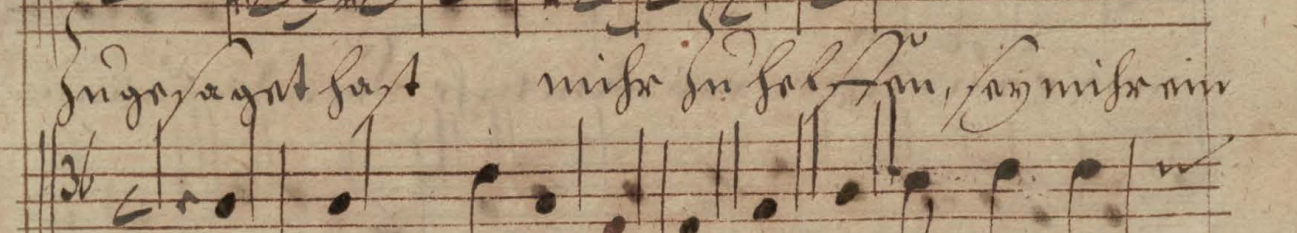 zugesaget hast mihr zu helffen, sey mihr ein